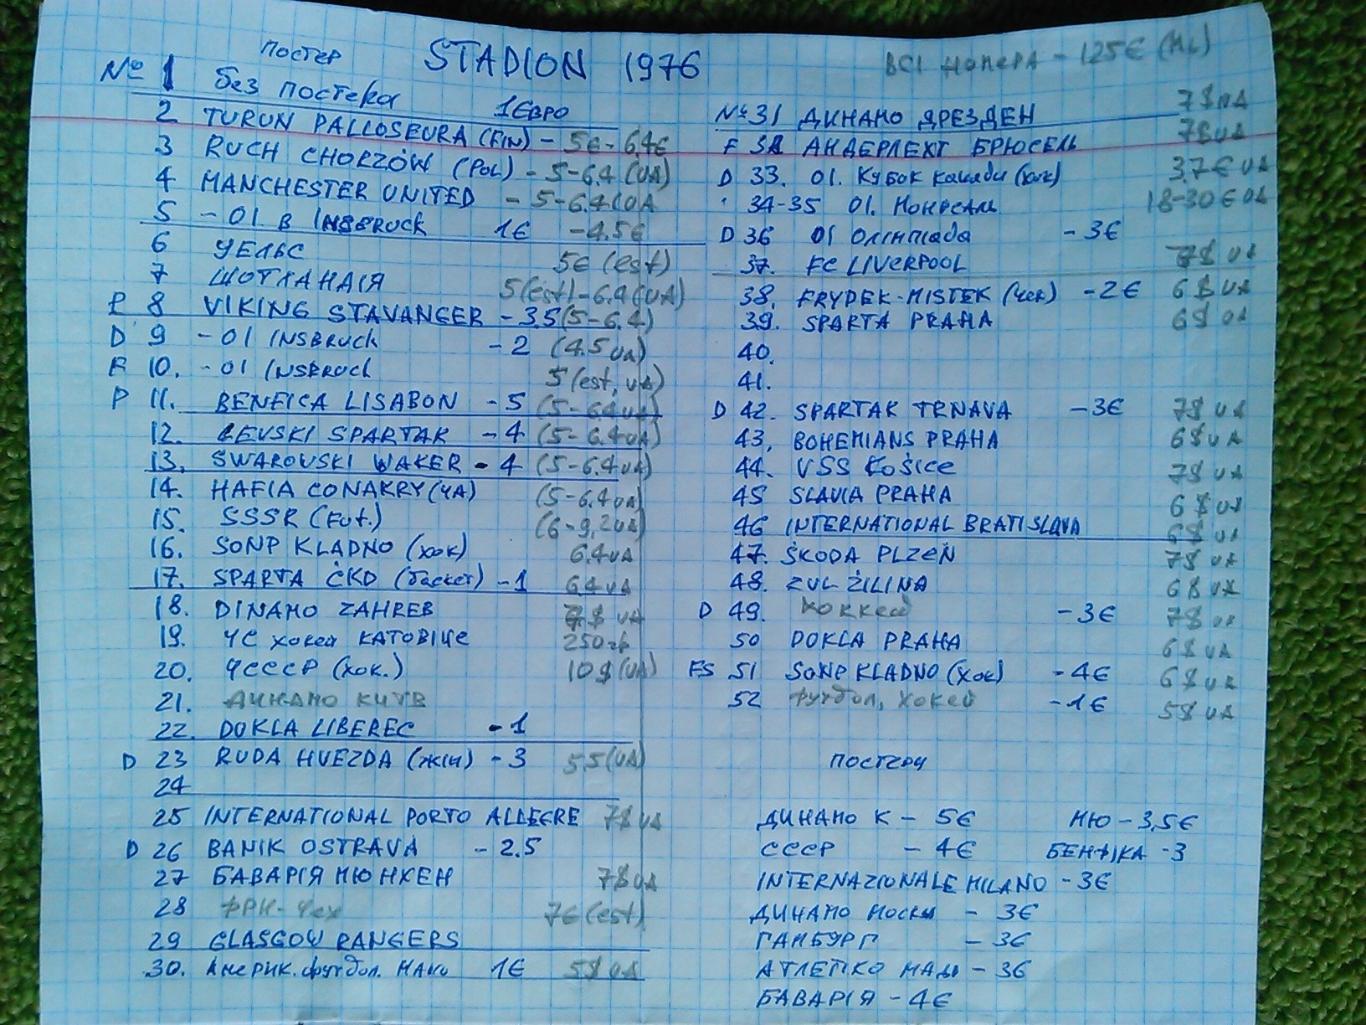 постер STADION 1976 ВСІ НОМЕРА - 125€ (ML)
№ 1 без постера 1 ЕВРО
2 TURUN PALLOSEURA (FIN) - 5€ - 6.4€
3 RUCH CHORZÓW (POL) - 5-6.4 (UA)
4 MANCHESTER UNITED - 5-6.4 (UA
5 - 01. В INSBRUCK 1€ - 4.5€
6 УЕЛЬС 5€ (est)
7 ШОТЛАНДІЯ 5(est) - 6.4 (UA)
P 8 VIKING STAVANGER - 3.5 (5-6.4)
D 9 - 01 INSBRUCK - 2 (4.5 UA)
F 10. - 01 INSBRUCK 5 (est, UA)
P 11. BENFICA LISABON - 5 (5-6.4 UA)
12. LEVSKI SPARTAK - 4 (5-6.4 UA)
13. SWAROVSKI WAKER - 4 (5-6.4 UA)
14. HAFIA CONAKRY (ЧА) (5-6.4 UA)
15. SSSR (Fut.) (6-9,2 UA)
16. SONP KLADNO (хок) 6.4 UA
17. SPARTA ČKD (баскет) - 1 6.4 UA
18. DINAMO ZAHREB 7$ UA
19. ЧС хокей КАТОВІЦЕ 250 гр
20. ЧСССР (хок.) 10$ (UA)
21. ДИНАМО КИЇВ
22. DUKLA LIBEREC - 1
D 23 RUDA HVEZDA (жін) - 3 5.5 (UA)
24
25 INTERNATIONAL PORTO ALLEGRE 7$ UA
D 26 BANIK OSTRAVA - 2.5
27 БАВАРІЯ МЮНХЕН 7$ UA
28 ФРН - Чех 7€ (est)
29 GLASGOW RANGERS
30. Америк. футбол. 1€ 5$ UA
№ 31 ДИНАМО ДРЕЗДЕН 7$ UA
F 32 АНДЕРЛЕХТ БРЮСЕЛЬ 7$ UA
D 33. 01. Кубок канади (хок) 3.7€ UA
34-35 01. Монреаль 18-30€ UA
D 36 01 Олімпіада - 3€
37. FC LIVERPOOL 7$ UA
38. FRYDEK-MISTEK (чех) - 2€ 6$ UA
39. SPARTA PRAHA 6$ UA
40.
41.
D 42. SPARTAK TRNAVA - 3€ 7$ UA
43. BOHEMIANS PRAHA 6$ UA
44. VSS KOŠICE 7$ UA
45 SLAVIA PRAHA 6$ UA
46 INTERNATIONAL BRATISLAVA 6$ UA
47. ŠKODA PLZEŇ 7$ UA
48. ZVL ŽILINA 6$ UA
D 49. хоккей - 3€ 7$ UA
50 DUKLA PRAHA 6$ UA
FS 51 SONP KLADNO (хок) - 4€ 6$ UA
52 футбол, хокей - 1€ 5$ UA
постери
ДИНАМО К - 5€ МЮ - 3,5€
СССР - 4€ БЕНФІКА - 3
INTERNAZIONALE MILANO - 3€
ДИНАМО Москы - 3€
ГАМБУРГ - 3€
АТЛЕТІКО МАД - 3€
БАВАРІЯ - 4€